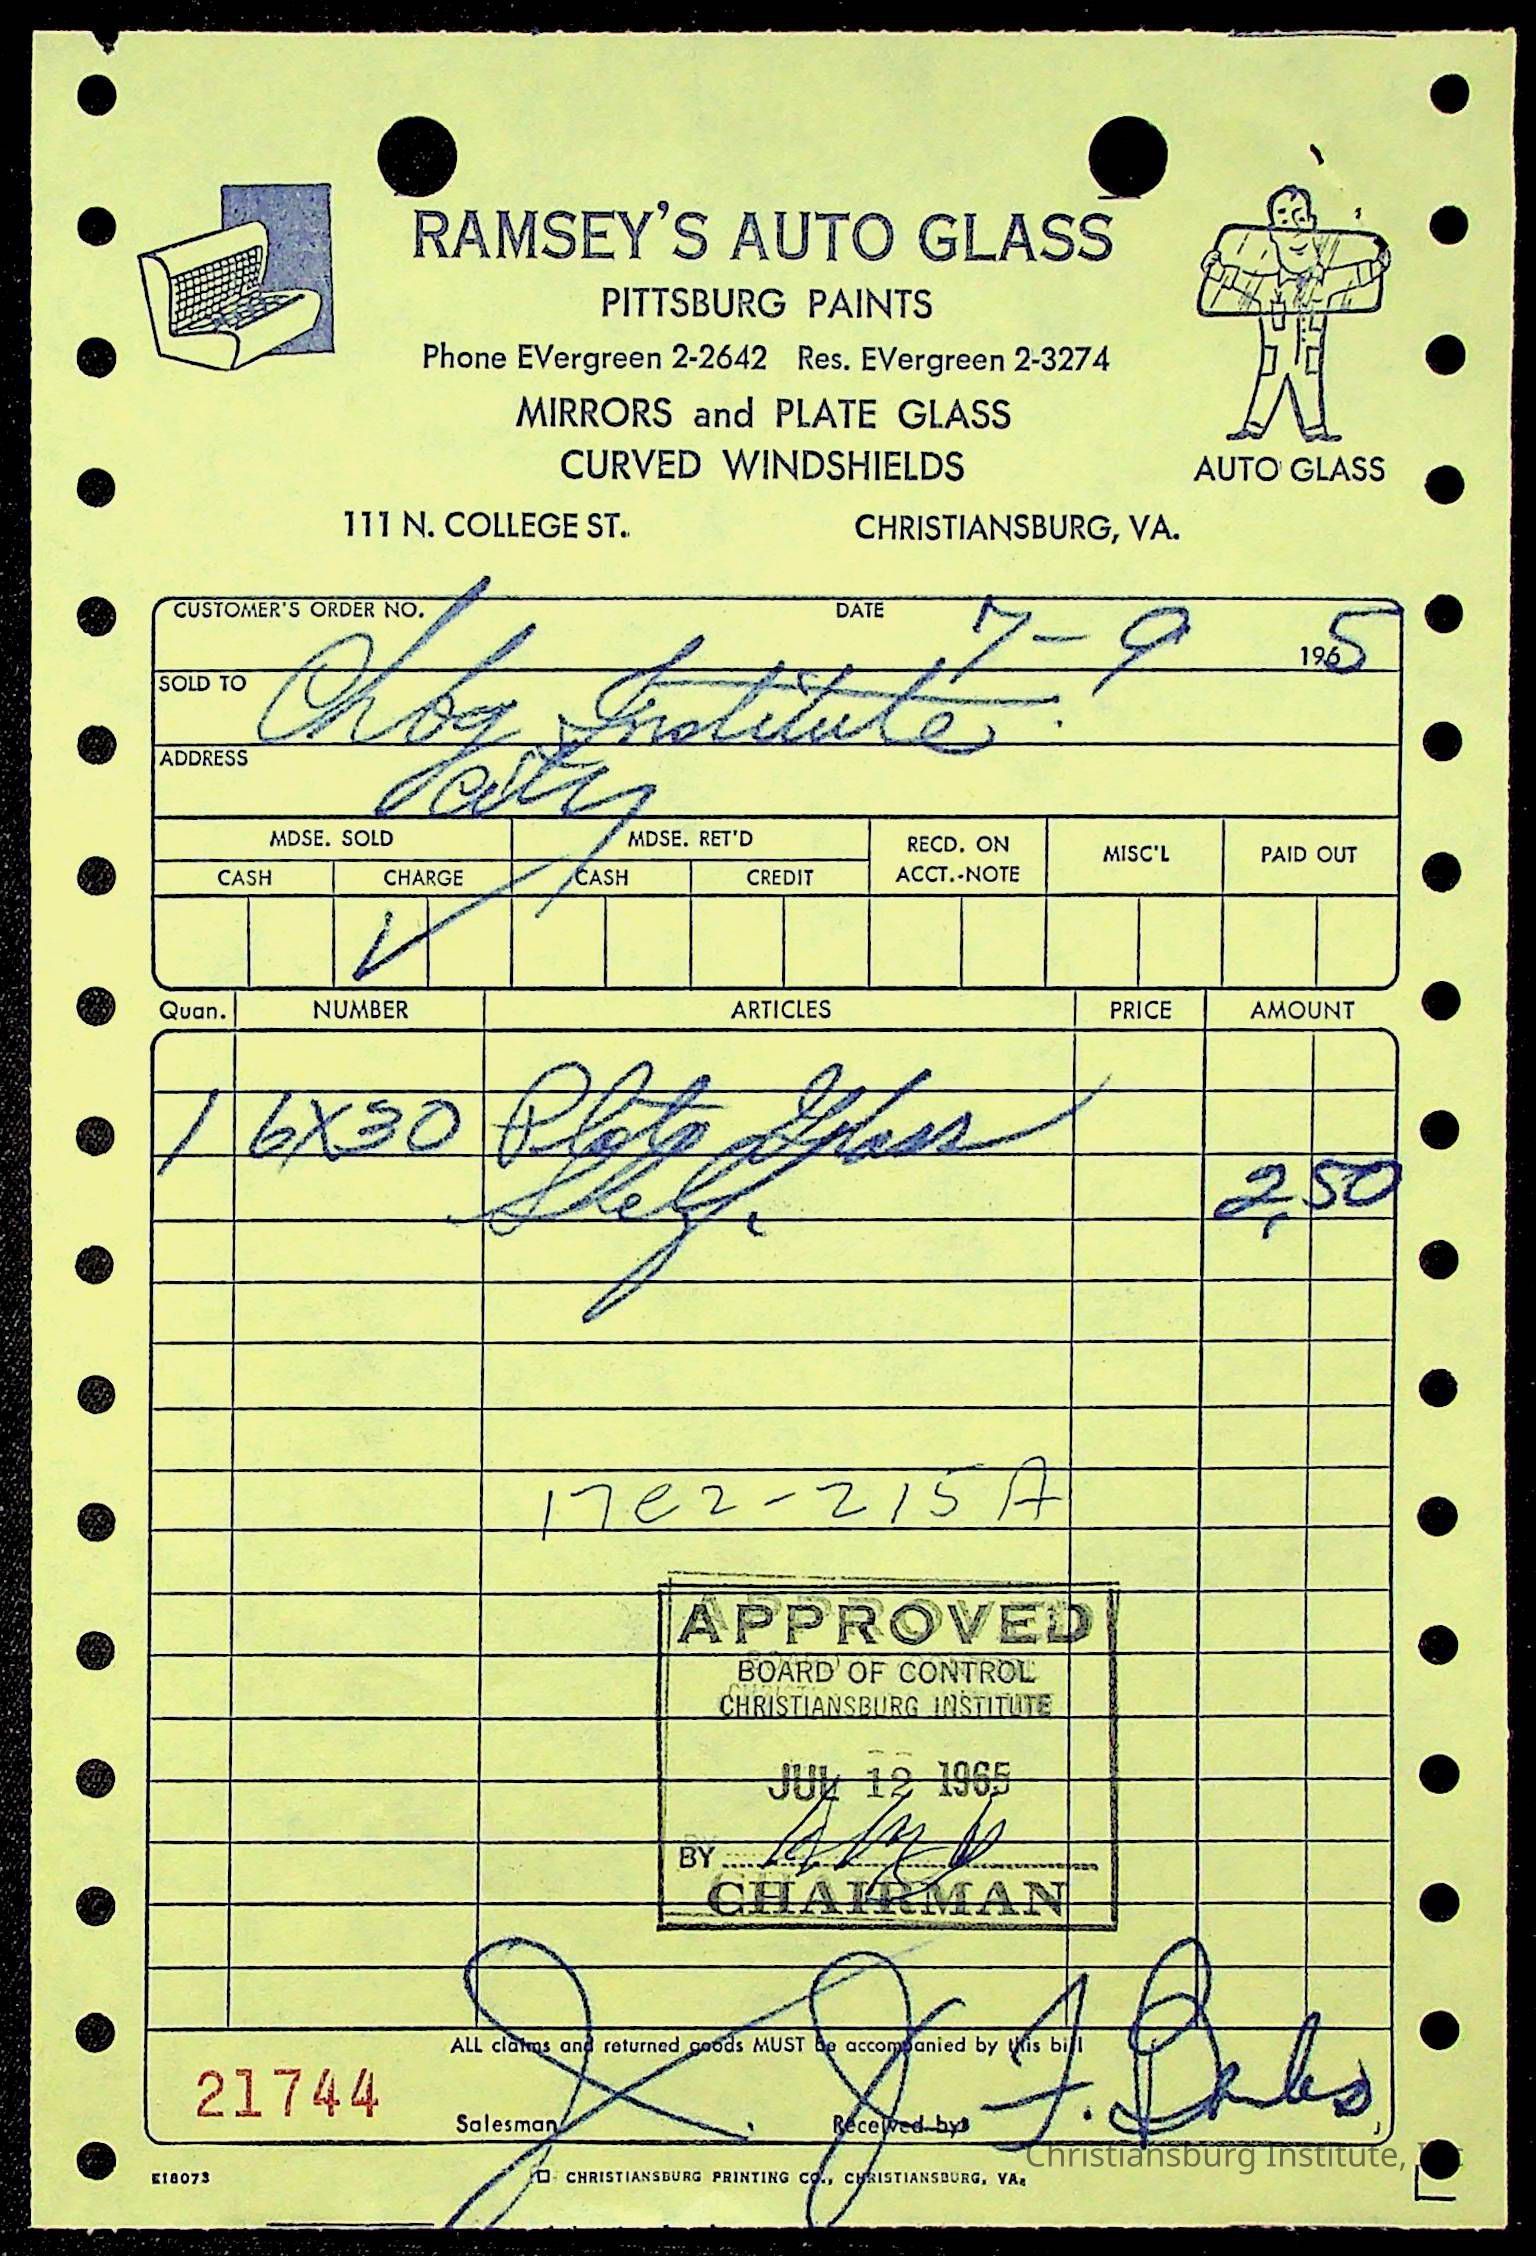 RAMSEY'S AUTO GLASS
PITTSBURG PAINTS
Phone EVergreen 2-2642 Res. EVergreen 2-3274
MIRRORS and PLATE GLASS
CURVED WINDSHIELDS
AUTO GLASS
111 N. COLLEGE ST. CHRISTIANSBURG, VA.
CUSTOMER'S ORDER NO. DATE 7-9 1965
SOLD TO Chbg Institute.
ADDRESS City
MDSE. SOLD MDSE. RET'D RECD. ON ACCT.-NOTE MISC'L PAID OUT
CASH CHARGE CASH CREDIT
Quan. NUMBER ARTICLES PRICE AMOUNT
1 6X30 Plate Glass
Shelf. 2.50
17e2-215A
APPROVED
BOARD OF CONTROL
CHRISTIANSBURG INSTITUTE
JUL 12 1965
BY
CHAIRMAN
ALL claims and returned goods MUST be accompanied by this bill
21744
Salesman Received by J. F. Banks
E18073 CHRISTIANSBURG PRINTING CO., CHRISTIANSBURG, VA.
Christiansburg Institute, Inc